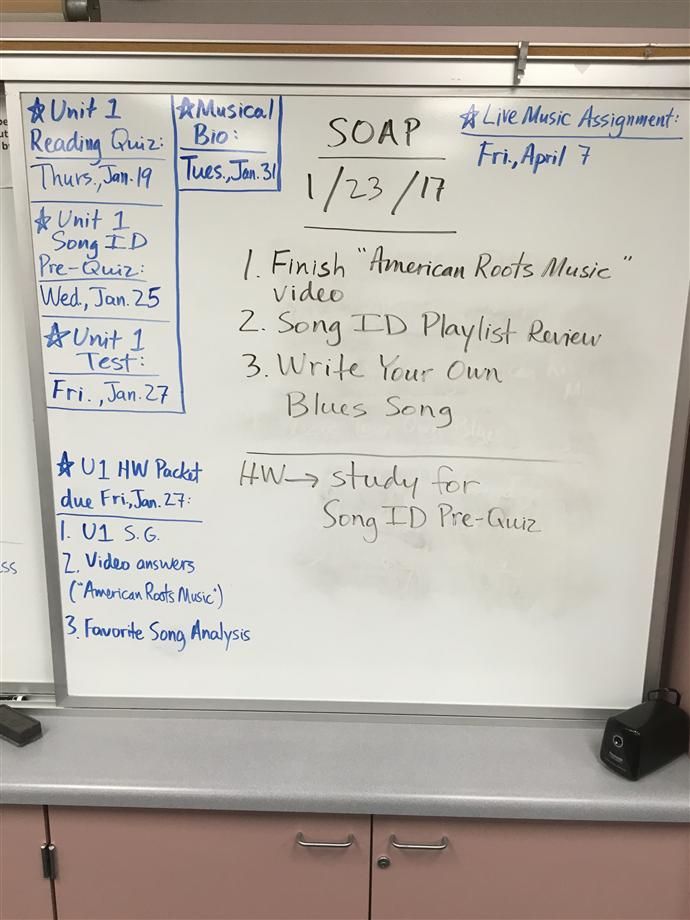 ☆ Unit 1
Reading Quiz:
Thurs., Jan. 19
☆ Unit 1
Song ID
Pre-Quiz:
Wed., Jan. 25
☆ Unit 1
Test:
Fri., Jan. 27
☆ Musical
Bio:
Tues., Jan. 31
SOAP
1/23/17
☆ Live Music Assignment:
Fri., April 7
1. Finish "American Roots Music"
video
2. Song ID Playlist Review
3. Write Your Own
Blues Song
HW → study for
Song ID Pre-Quiz
☆ U1 HW Packet
due Fri, Jan. 27:
1. U1 S.G.
2. Video answers
("American Roots Music")
3. Favorite Song Analysis